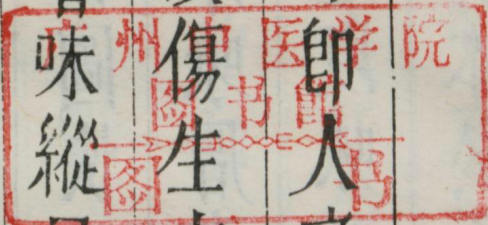 即人
傷生
味縱
广州中医学院
图书馆
图书